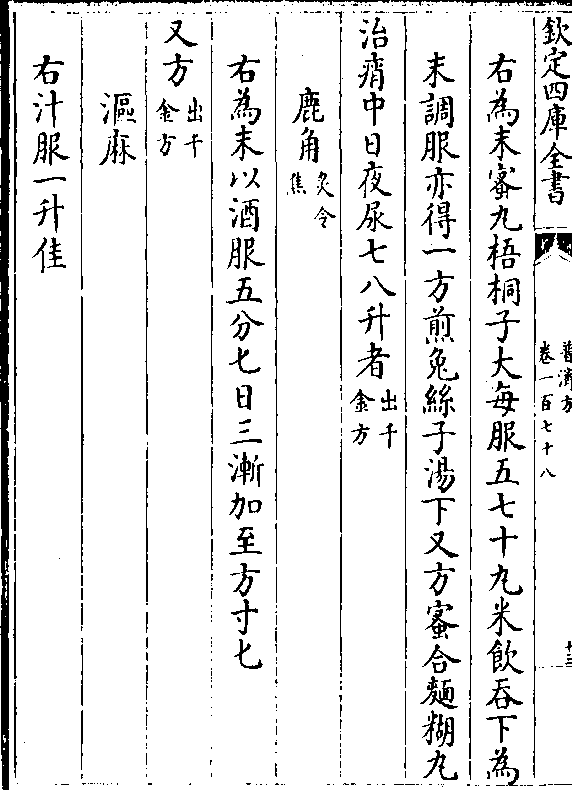 欽定四庫全書
普濟方
卷一百七十八
十三
右為末蜜丸梧桐子大每服五七十丸米飲吞下為
末調服亦得一方煎兔絲子湯下又方蜜合麵糊丸
治痟中日夜尿七八升者出千金方
鹿角炙令焦
右為末以酒服五分匕日三漸加至方寸匕
又方出千金方
漚麻
右汁服一升佳